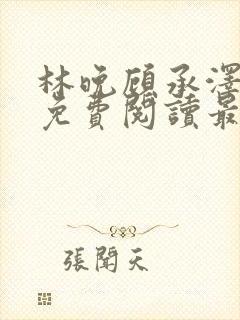 林晚顾承澤
免費閱讀最
張聞天